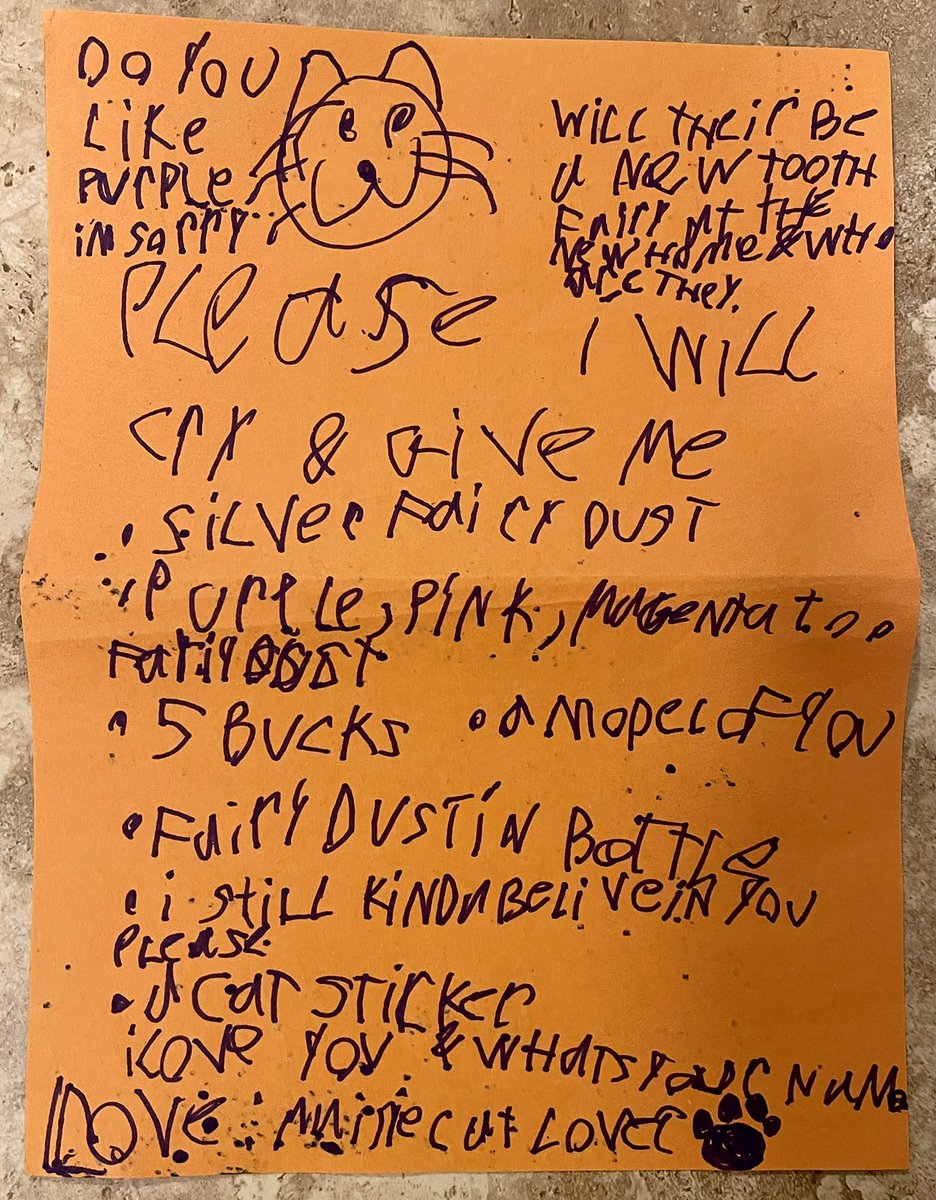 DO YOU
LiKE
PURPLE
im sorry
WiLL THEiR BE
a NeW TOOTH
FAiry AT THE
NeW HOMe & WHO
ArE THEY.
PLEaSe
I WiLL
CrY & GiVe Me
• SiLVer FAirY DUST
• PUrPLe, PiNK, MAGENTa too
FAiry DUST
• 5 BUCKS
• a MODEL OF YOU
• FAirY DUST iN BOTTLe
• i STiLL KiNDA BeLiVe iN YOU
PLEASE
• a CaT STiCKer
iLOVe YOU & WHATS YOUr NaMe
LOVe: caT LOVer